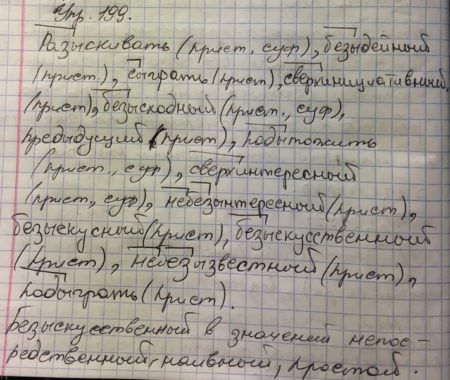 Упр. 199.
Разыскивать (прист., суф), безыдейный
(прист.), сыграть (прист), сверхинициативный
(прист), безысходный (прист., суф),
предыдущий (прист), подытожить
(прист., суф), сверхинтересный
(прист, суф), небезынтересный (прист),
безыскусный (прист), безыскусственный
(прист), небезызвестный (прист),
подыграть (прист).
Безыскусственный в значений непос-
редственный, наивный, простой.